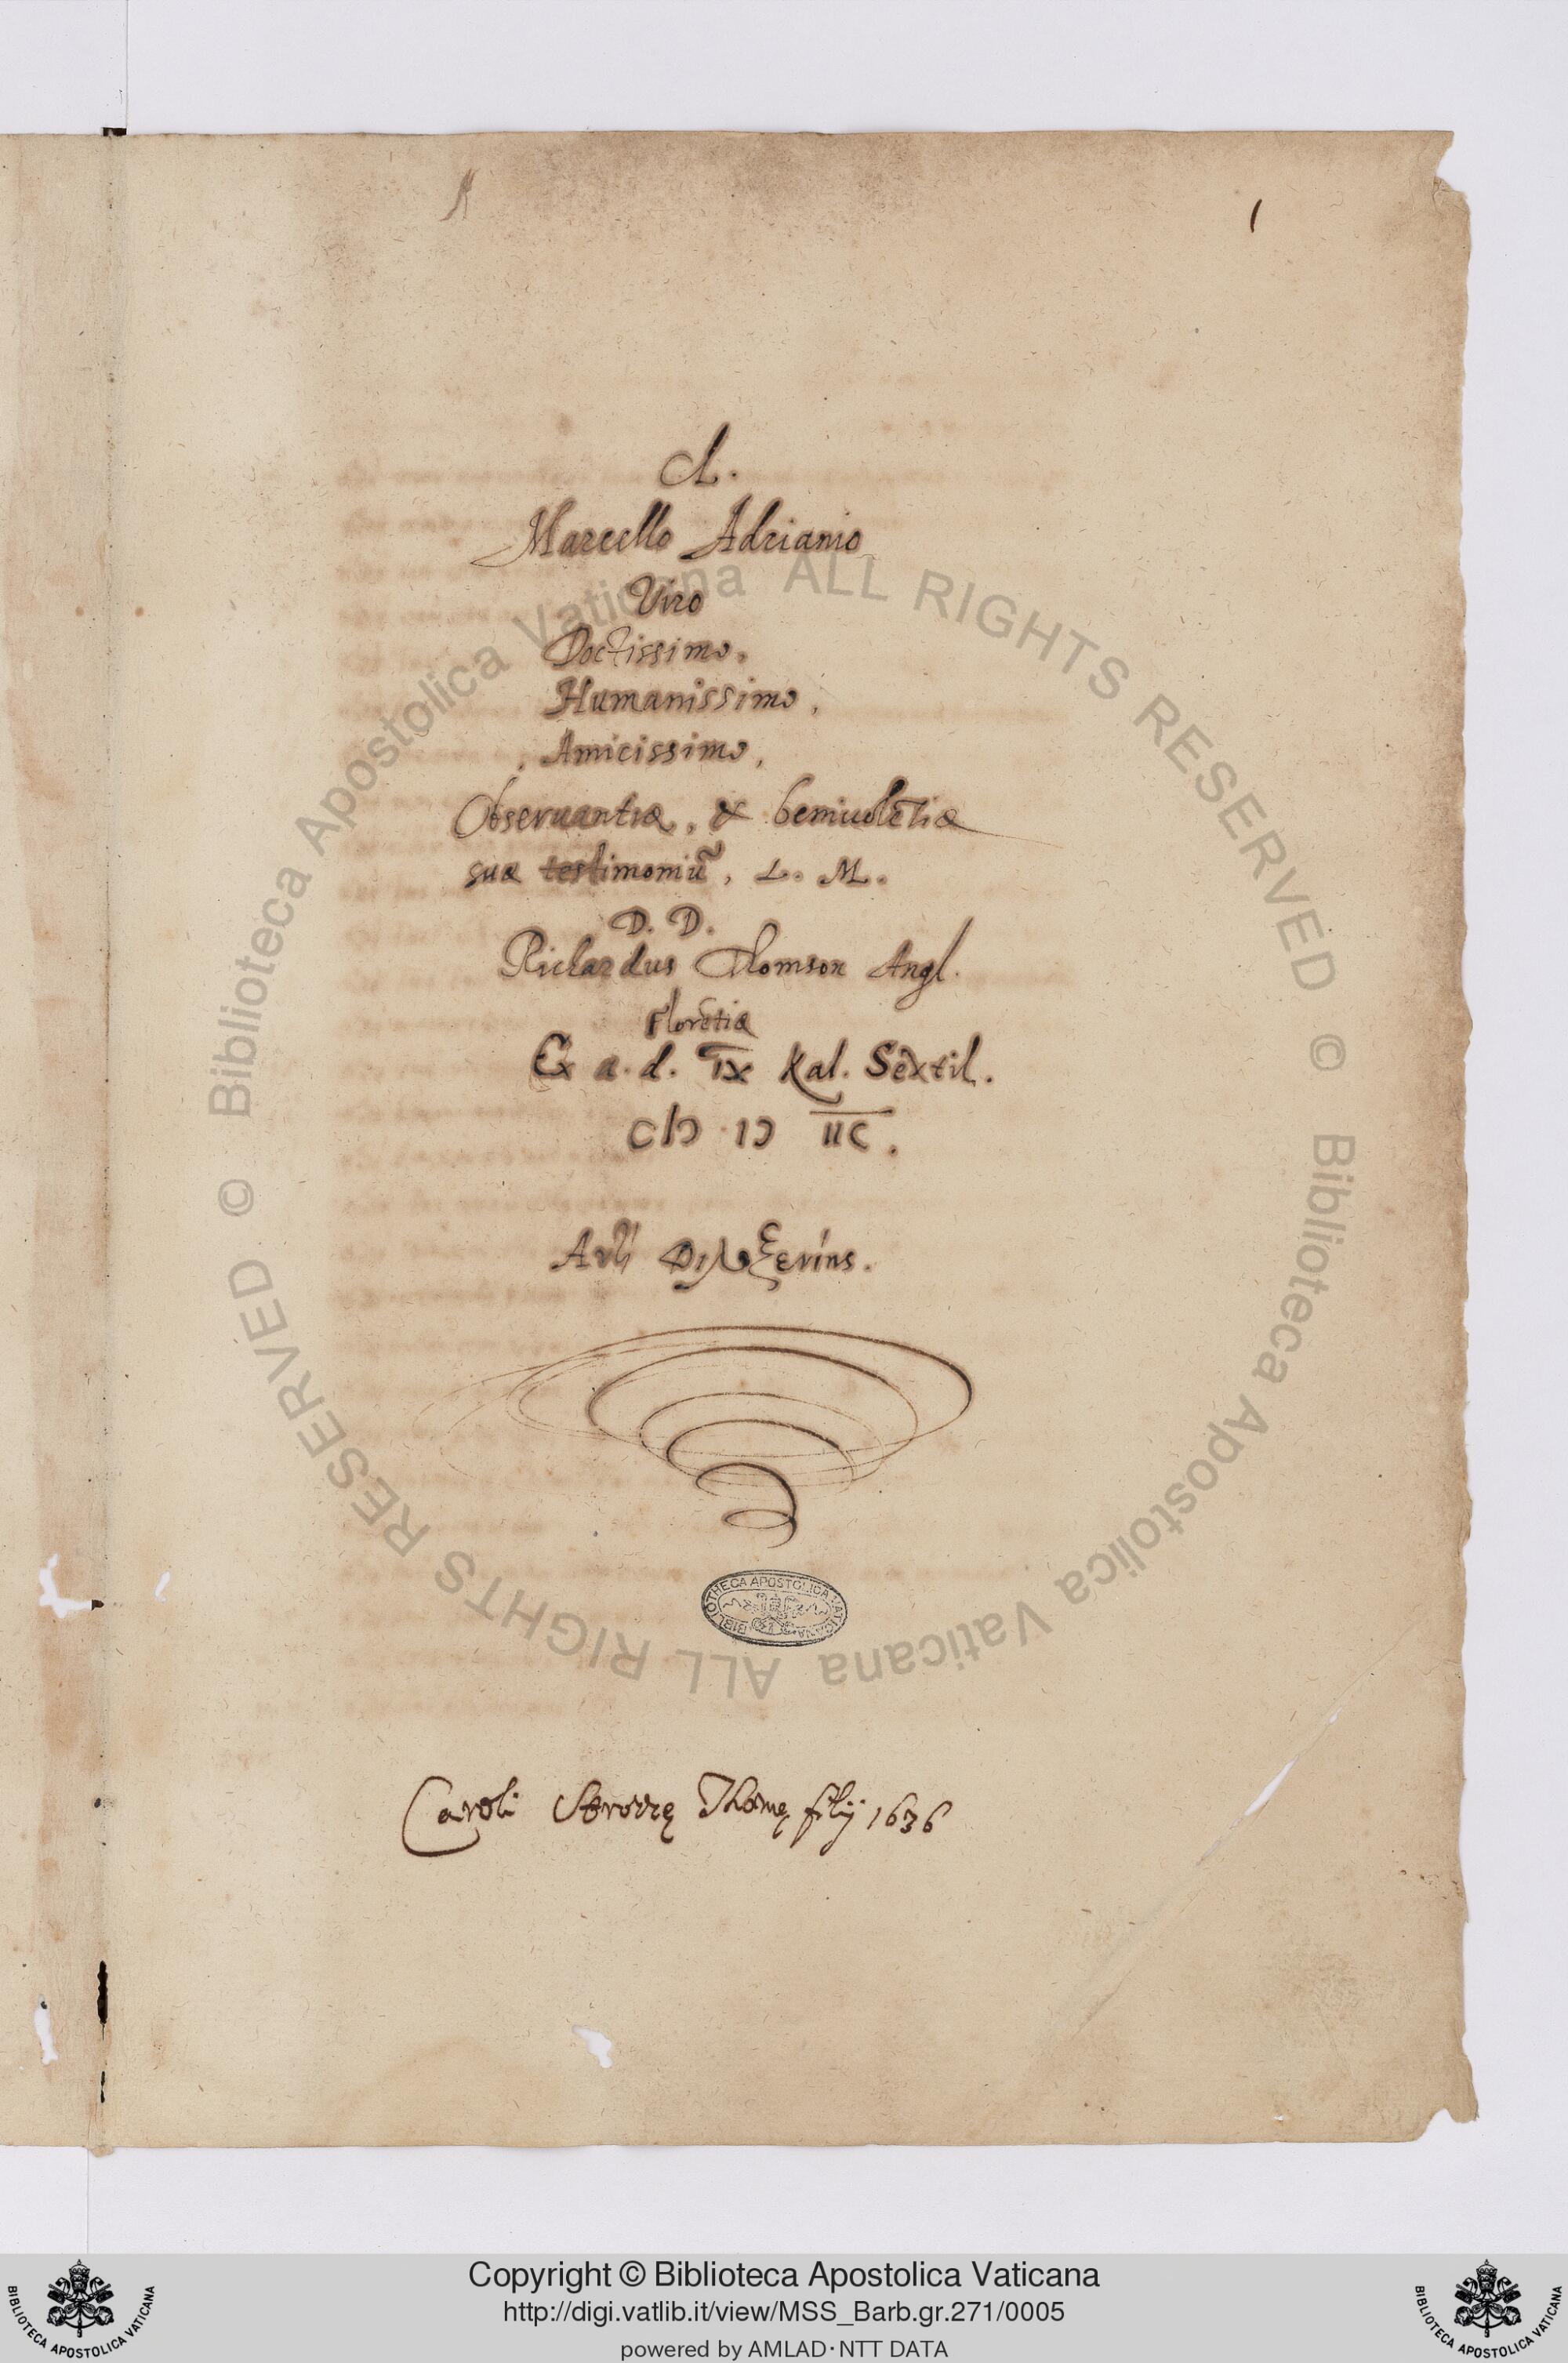 1
Cl.
Marcello Adrianio
Viro
Doctissimo,
Humanissimo,
Amicissimo,
Obseruantiæ, & beniuolẽtiæ
suæ testimoniũ, L. M.
D. D.
Richardus Thomson Angl.
Florẽtiæ
a. d. IX Kal. Sextil.
CIƆ IƆ IIC.
Caroli Strozzę Thomę filij 1636
BIBLIOTHECA APOSTOLICA VATICANA
© Biblioteca Apostolica Vaticana ALL RIGHTS RESERVED
© Biblioteca Apostolica Vaticana ALL RIGHTS RESERVED
Copyright © Biblioteca Apostolica Vaticana
http://digi.vatlib.it/view/MSS_Barb.gr.271/0005
powered by AMLAD·NTT DATA
BIBLIOTECA APOSTOLICA VATICANA
BIBLIOTECA APOSTOLICA VATICANA